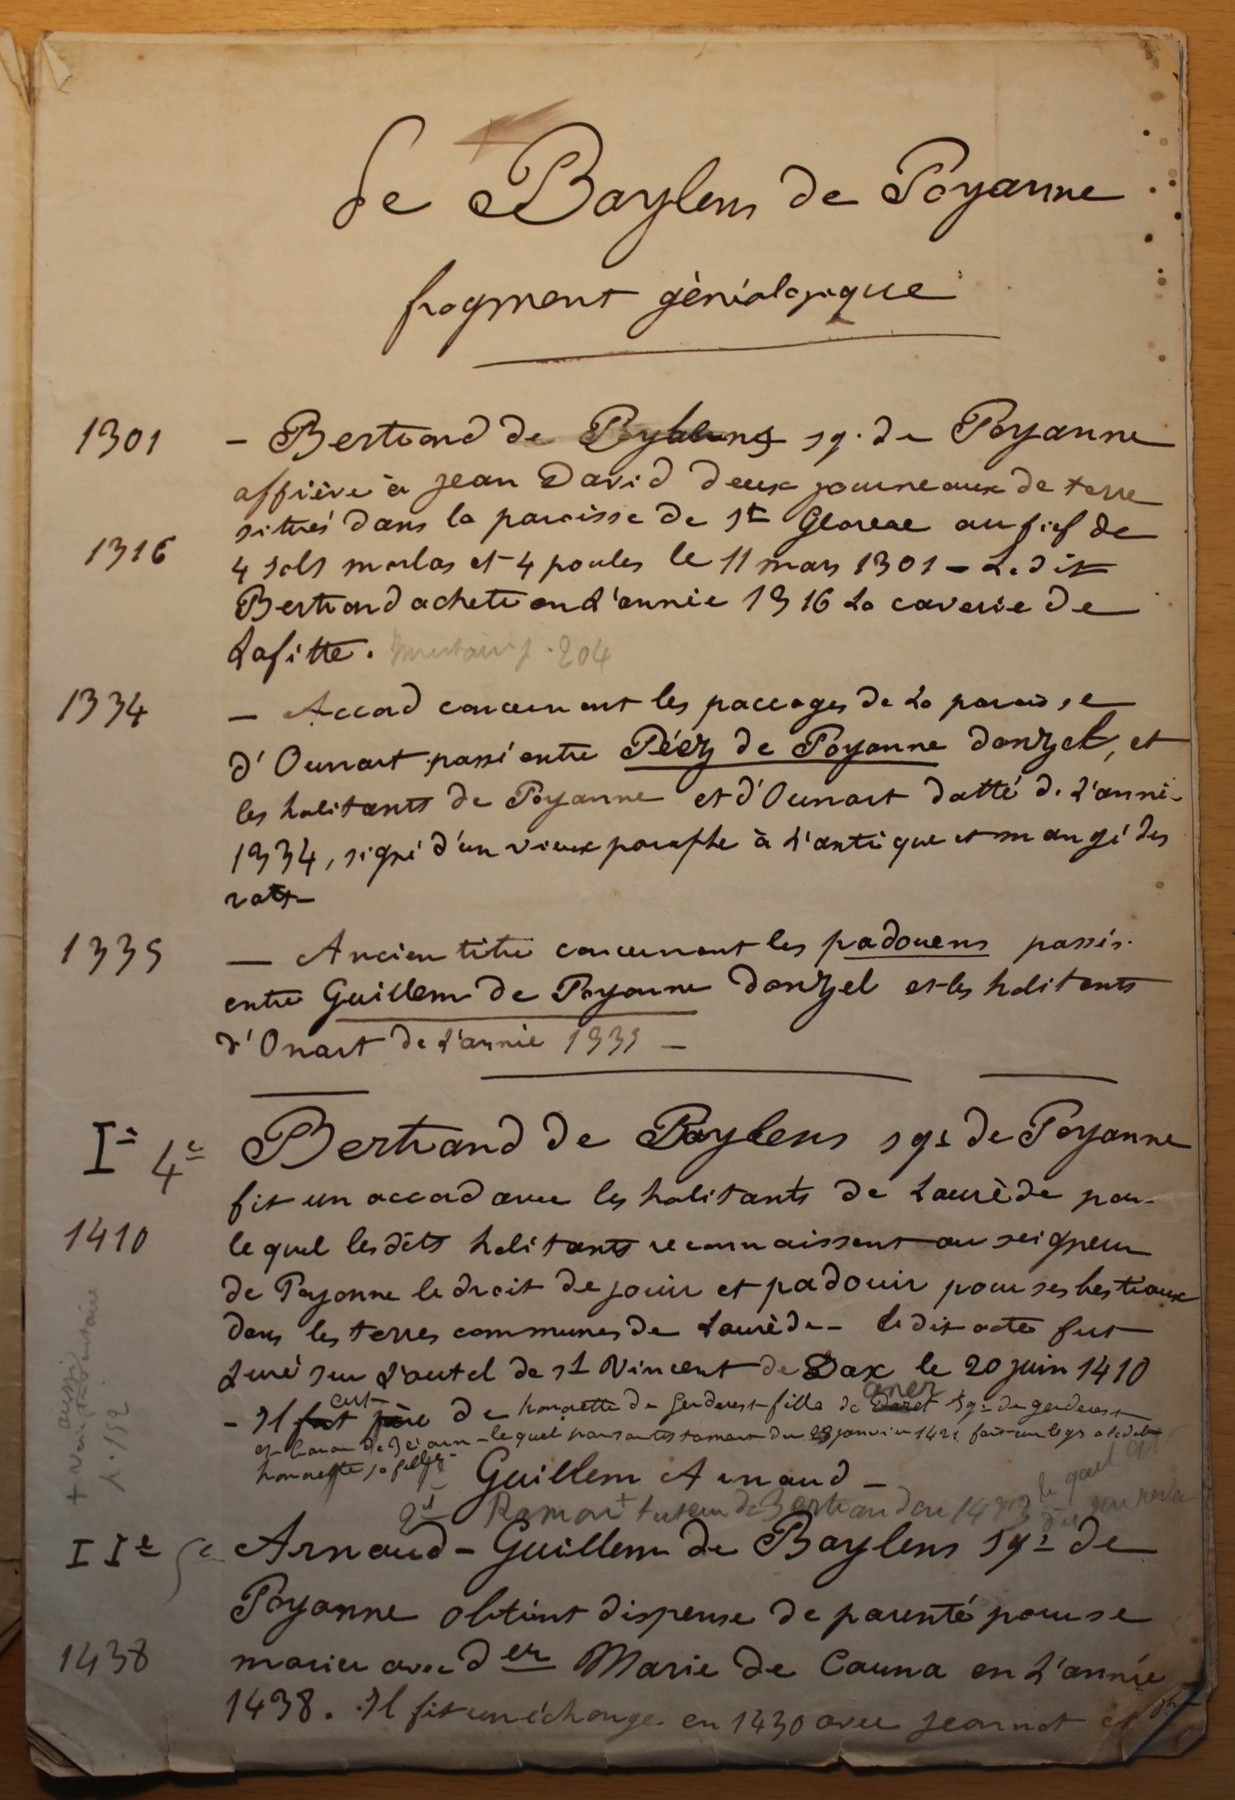 de Baylens de Poyanne
fragment généalogique
1301 – Bertrand de Baylens sgr. de Poyanne
affiève à jean David deux journeaux de terre
situés dans la paroisse de st Geours au fief de
1316 4 sols morlas et 4 poules le 11 mars 1301 – Ledit
Bertrand acheta en l'année 1316 la caverie de
Lafitte. 204
1334 – Accord concernant les paccages de la paroisse
d'Ounart passé entre Péés de Poyanne donzel, et
les habitants de Poyanne et d'Ounart datté de l'année
1334, signé d'un vieux paraphe à l'antique et mangé des
rats –
1335 – Ancien titre concernant les padouens passés
entre Guillem de Poyanne donzel et les habitants
d'Onart de l'année 1335 –
Ie 4e Bertrand de Baylens sgr de Poyanne
fit un accord avec les habitants de Laurède par
1410 lequel lesdits habitants reconnaissent au seigneur
de Poyanne le droit de jouir et padouir pour ses bestiaux
dans les terres communes de Laurède – ledit acte fut
juré sur l'autel de st Vincent de Dax le 20 juin 1410
– Il fut père de honorette de Genderest fille de sgr de genderest
lequel par son testament du janvier 142 fait un legs a ladite
honorette sa fille
+ voir aussi
p. 152
Guillem Arnaud –
2d Ramon tuteur de Bertrand en
IIe 5e Arnaud-Guillem de Baylens sgr de
Poyanne obtint dispense de parenté pour se
1438 marier avec der Marie de Cauna en l'année
1438. Il fit un échange en 1430 avec jeannot et